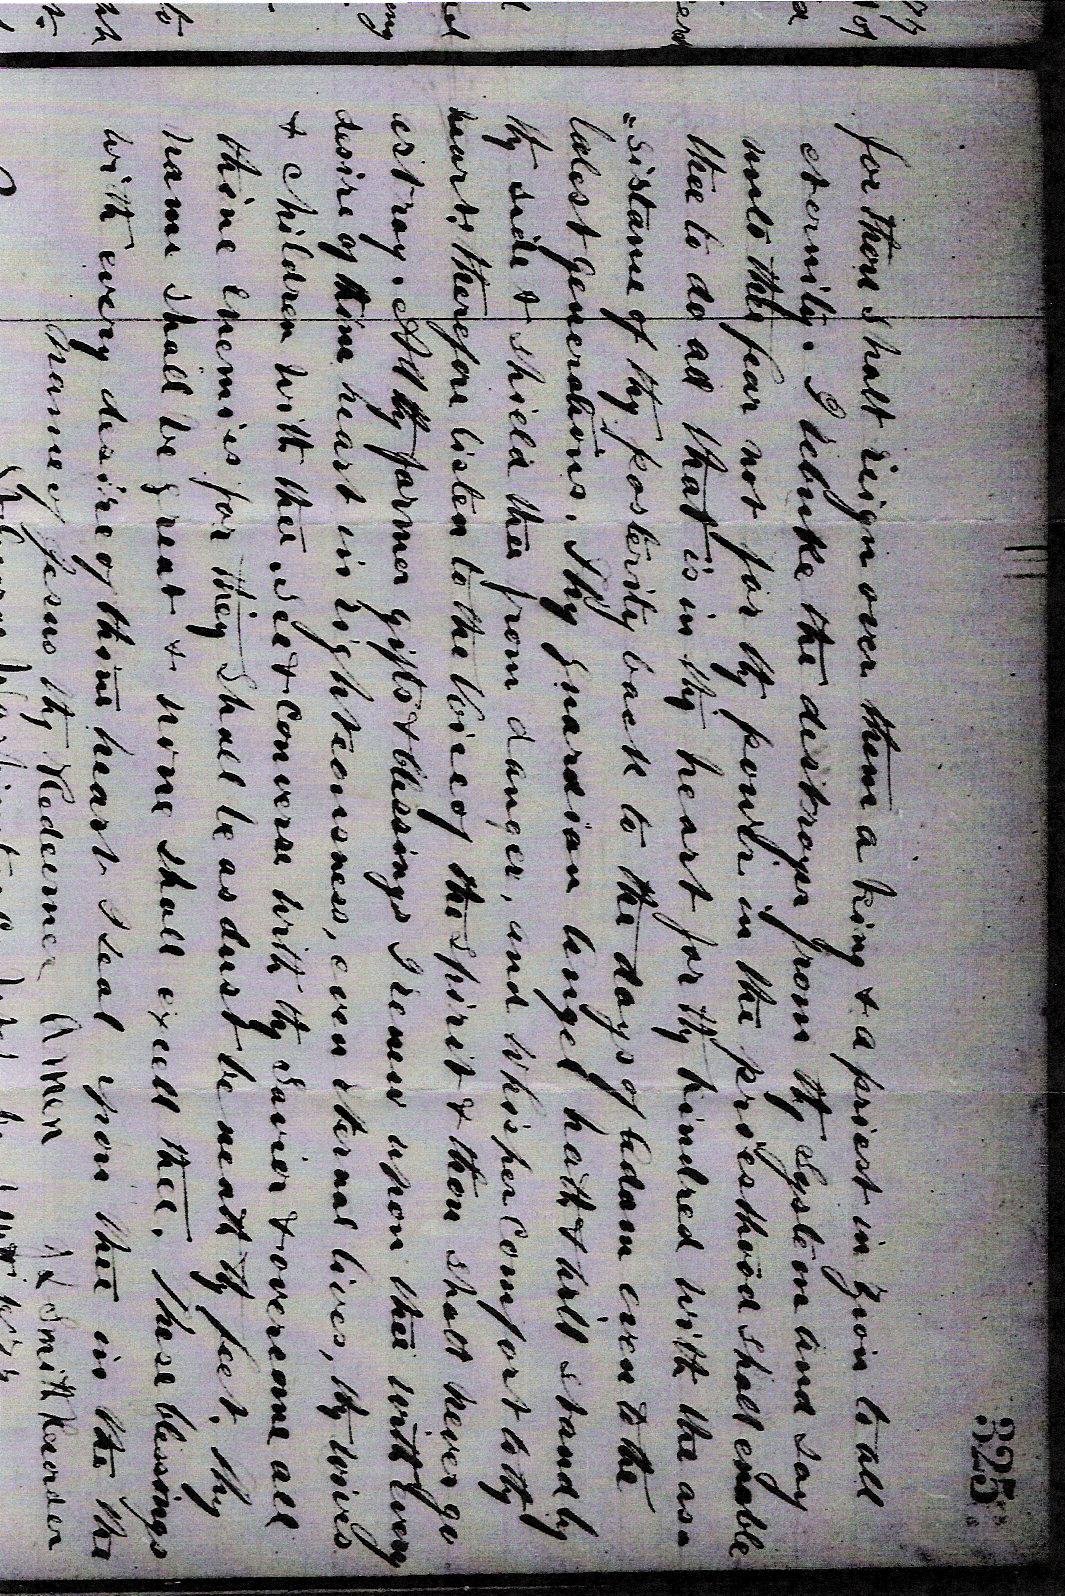 325
for thou shalt reign over them a king & a priest in Zion to all
eternity. I rebuke the destroyer from thy system and say
unto thee fear not for thy power in the priesthood shall enable
thee to do all that is in thy heart for thy kindred with the as=
=sistance of thy posterity back to the days of Adam even to the
latest generations. Thy guardian angel hath & will stand by
thy side & shield thee from danger, and whisper comfort to thy
heart, therefore listen to the voice of the spirit & thou shall never go
astray. All thy former gifts & blessings I renew upon thee with every
desire of thine heart in righteousness, even eternal lives, thy wives
& children with thee. See & converse with thy Savior & overcome all
thine enemies for they shall be as dust beneath thy feet. Thy
name shall be great & none shall excell thee. These blessings
with every desire of thine heart I seal upon thee in the the
name of Jesus thy Redeemer Amen J L Smith Recorder